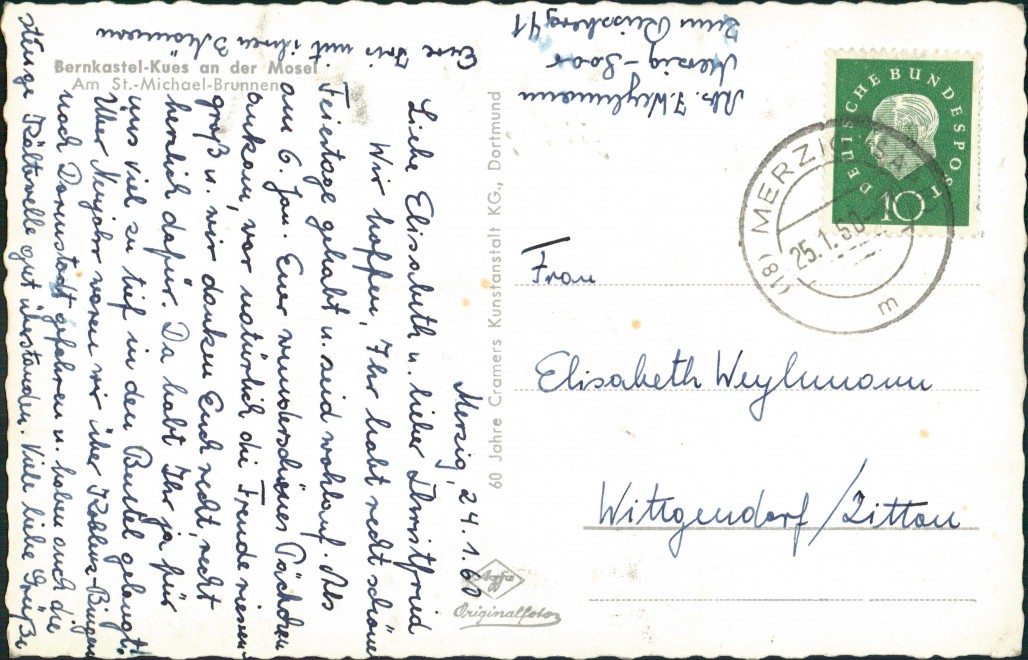 Bernkastel-Kues an der Mosel
Am St.-Michael-Brunnen
Merzig, 24.1.60
Liebe Elisabeth u. lieber
Wir hoffen, Ihr habt recht schöne
Feiertage gehabt u. seid wohlauf. Als
am 6. Jan. Euer wunderschönes Päckchen
ankam, war natürlich die Freude riesen-
groß u. wir danken Euch recht, recht
herzlich dafür. Da habt Ihr ja für
uns viel zu tief in den Beutel gelangt!
Über Neujahr waren wir über Koblenz-Bingen
nach Darmstadt gefahren u. haben auch die
Kältewelle gut überstanden. Viele liebe Grüße
Eure Iris mit ihren
60 Jahre Cramers Kunstanstalt KG., Dortmund
Agfa
Originalfoto
Abs. J. Weylmann
Merzig-Saar
Zum 41
DEUTSCHE BUNDESPOST
10
(18) MERZIG SAAR
25.1.60
m
Frau
Elisabeth Weylmann
Wittgendorf / Zittau